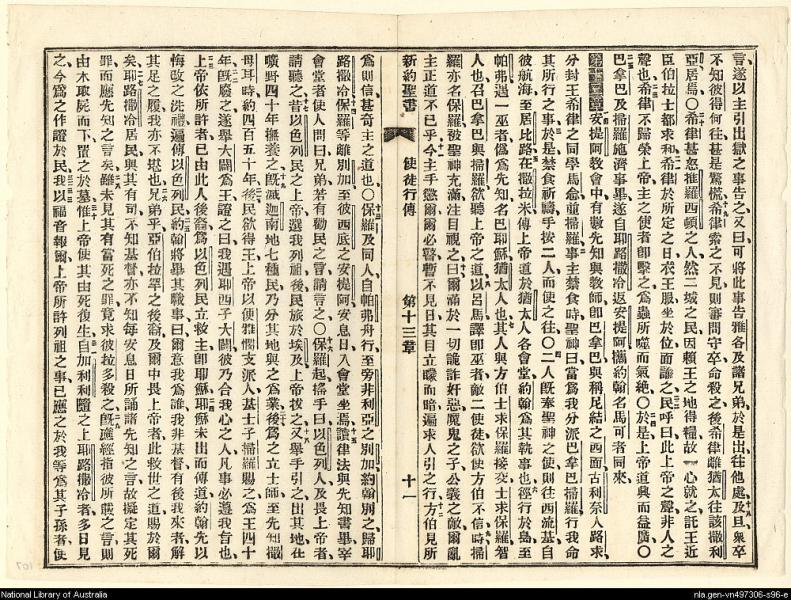 言遂以主引出獄之事告之又曰可將此事告雅各及諸兄弟於是出往他處及旦眾卒
不知彼得何往甚是驚慌希律索之不見則審問守卒命殺之後希律離猶太往該撒利
亞居焉○希律甚怒推羅西頓之人然二城之民因賴王之地得糧故一心就之託王近
臣伯拉士都求和希律於所定之日衣王服坐於位而諭之民呼曰此上帝之聲非人之
聲也希律不歸榮上帝主之使者卽擊之爲蟲所噬而氣絕○於是上帝道興而益廣○
巴拿巴及掃羅施濟事畢遂自耶路撒冷返安提阿攜約翰名馬可者同來
第十三章安提阿敎會中有數先知與敎師卽巴拿巴與稱尼結之西面古利奈人路求
分封王希律之同學馬念並掃羅事主禁食時聖神曰當爲我分派巴拿巴掃羅行我命
其所行之事於是禁食祈禱手按二人而使之往○二人旣奉聖神之使則往西流基自
彼航海至居比路在撒拉米傳上帝道於猶太人各會堂約翰爲其執事也徑行於島至
帕弗遇一巫者僞爲先知名巴耶穌猶太人也其人與方伯士求保羅接交士求保羅智
人也召巴拿巴與掃羅欲聽上帝之道以呂馬譯卽巫者敵二使徒欲使方伯不信時掃
羅亦名保羅被聖神充滿注目視之曰爾滿於一切詭詐奸惡魔鬼之子公義之敵爾亂
主正道不已乎今主手懲爾爾必瞽暫不見日其目立矇而暗遍求人引之行方伯見所
新約聖書 使徒行傳 第十三章 十一
爲則信甚奇主之道也○保羅及同人自帕弗舟行至旁非利亞之別加約翰別之歸耶
路撒冷保羅等離別加至彼西底之安提阿安息日入會堂坐焉讀律法與先知書畢宰
會堂者使人問曰兄弟若有勸民之言請言之○保羅起搖手曰以色列人及畏上帝者
請聽之昔以色列民之上帝選我列祖後民旅於埃及上帝拔之又舉手引之出其地在
曠野四十年撫養之旣滅迦南地七種民乃分其地與之爲業後爲之立士師至先知撒
母耳時約四百五十年後民欲得王上帝以便雅憫支派人基士子掃羅賜之爲王四十
年旣廢之遂舉大闢爲王證之曰我遇耶西子大闢彼乃合我心之人凡事必遵我旨也
上帝依所許者已由此人後裔爲以色列民立救主卽耶穌耶穌未出而傳道約翰先以
悔改之洗禮遍傳以色列民約翰將畢其職事曰爾意我爲誰我非基督有後我來者解
其足之履我亦不堪也兄弟乎亞伯拉罕之後裔及爾中畏上帝者此救世之道賜於爾
矣耶路撒冷居民與其有司不知基督亦不知每安息日所誦諸先知之言故擬定其死
罪而應先知之言矣雖未見其有當死之罪竟求彼拉多殺之旣應經指彼所載之言則
由木取屍而下置之於墓惟上帝使其由死復生自加利利隨之上耶路撒冷者多日見
之今爲之作證於民我以福音報爾上帝所許列祖之事已應之於我等爲其子孫者使
107
National Library of Australia
nla.gen-vn497306-s96-e